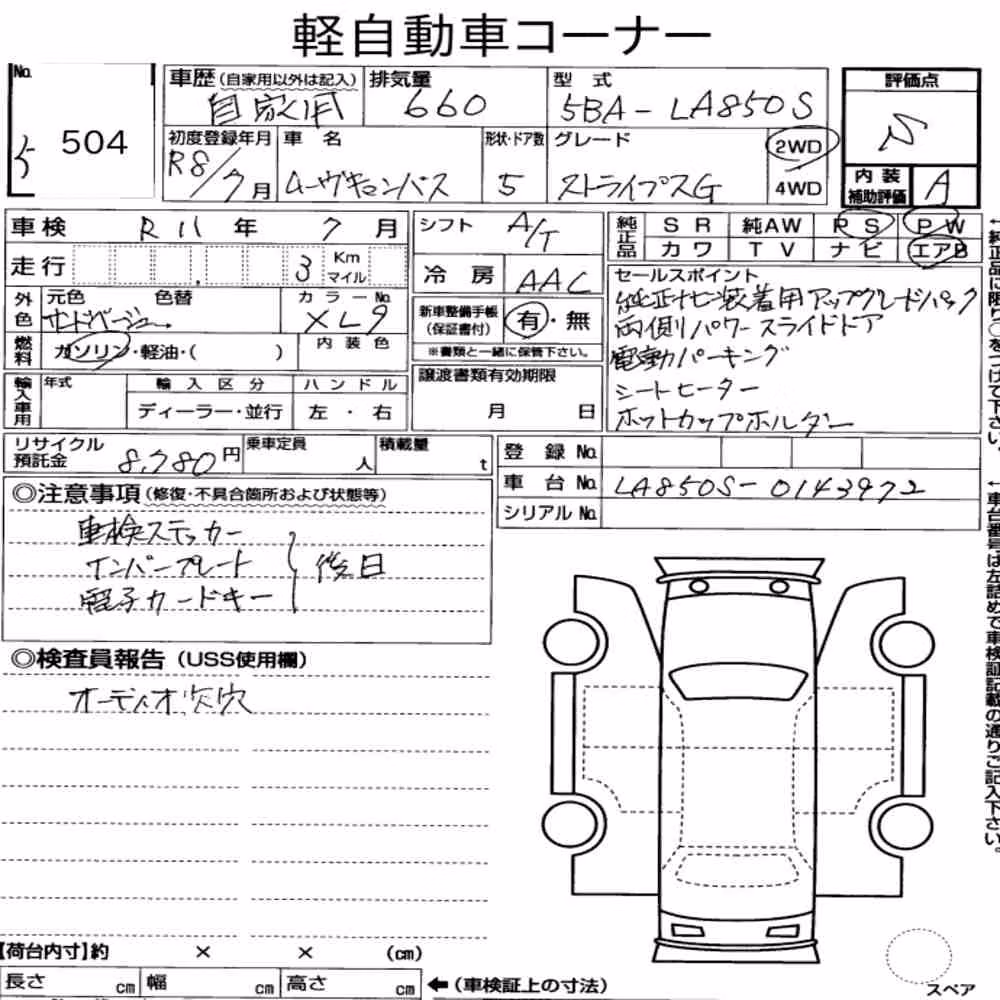 軽自動車コーナー
No.
504
車歴 (自家用以外は記入) 排気量 型式
自家用 660 5BA-LA850S
評価点
S
初度登録年月 車名 形状・ドア数 グレード
R8/7月 ムーヴキャンバス 5 ストライプスG
2WD
4WD
内装補助評価 A
車検 R11年 7月
シフト A/T
純正品 SR 純AW PS PW
カワ TV ナビ エアB
走行 3 Km マイル
冷房 AAC
外色 元色 色替 カラーNo.
サンドベージュ XL9
内装色
燃料 ガソリン・軽油・( )
新車整備手帳 (保証書付) 有・無
※書類と一緒に保管下さい。
セールスポイント
純正ナビ装着用アップグレードパック
両側パワースライドドア
電動パーキング
シートヒーター
ホットカップホルダー
輸入車用 年式 輸入区分 ハンドル
ディーラー・並行 左・右
譲渡書類有効期限
月 日
リサイクル預託金 8,780円
乗車定員 人
積載量 t
登録No.
車台No. LA850S-0143972
シリアルNo.
◎注意事項 (修復・不具合箇所および状態等)
車検ステッカー
ナンバープレート
電子カードキー
後日
◎検査員報告 (USS使用欄)
オーディオ欠穴
【荷台内寸】約 × × (cm)
長さ cm 幅 cm 高さ cm ←(車検証上の寸法)
スペア
←純正品に限り○をつけて下さい。
←車台番号は左詰めで車検証記載の通りご記入下さい。